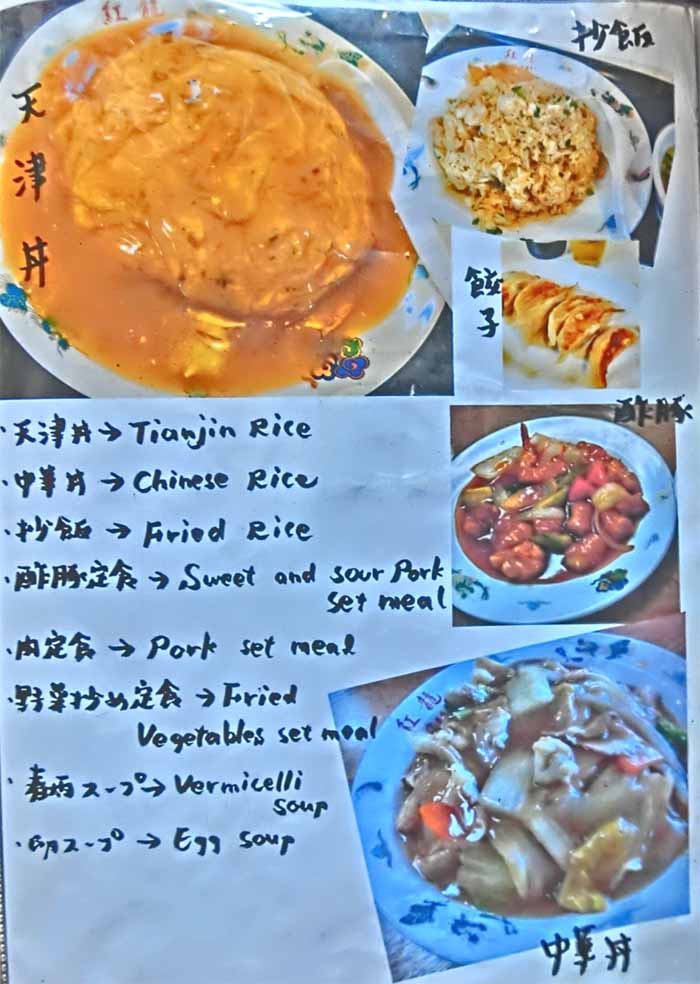 天津丼
炒飯
餃子
酢豚
・天津丼→Tianjin Rice
・中華丼→Chinese Rice
・炒飯→Fried Rice
・酢豚定食→Sweet and sour Pork
set meal
・肉定食→Pork set meal
・野菜炒め定食→Fried
Vegetables set meal
・春雨スープ→Vermicelli
soup
・卵スープ→Egg soup
紅龍
中華丼